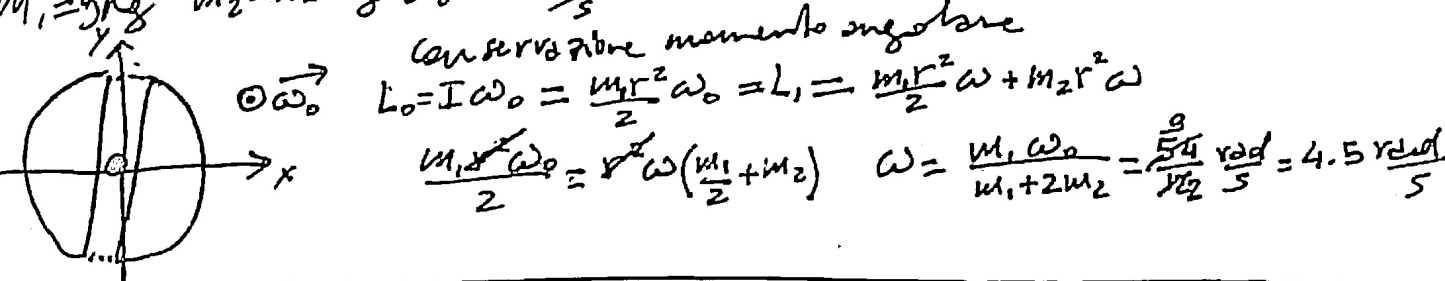 conservazione momento angolare
y
⊙ω₀⃗ L₀=Iω₀ = m₁r²/2 ω₀ = L₁ = m₁r²/2 ω + m₂r²ω
x
m₁r²ω₀/2 = r²ω(m₁/2 + m₂) ω = m₁ω₀/(m₁+2m₂) = 9 54/12 2 rad/s = 4.5 rad/s